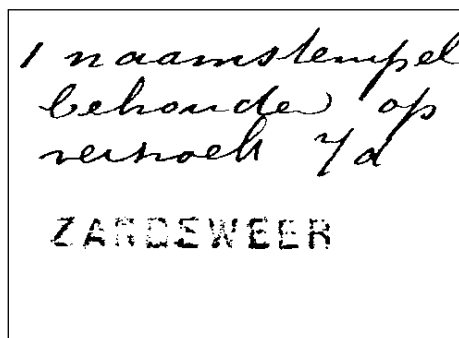 1 naamstempel
behoude op
verzoek 7/d
ZARDEWEER